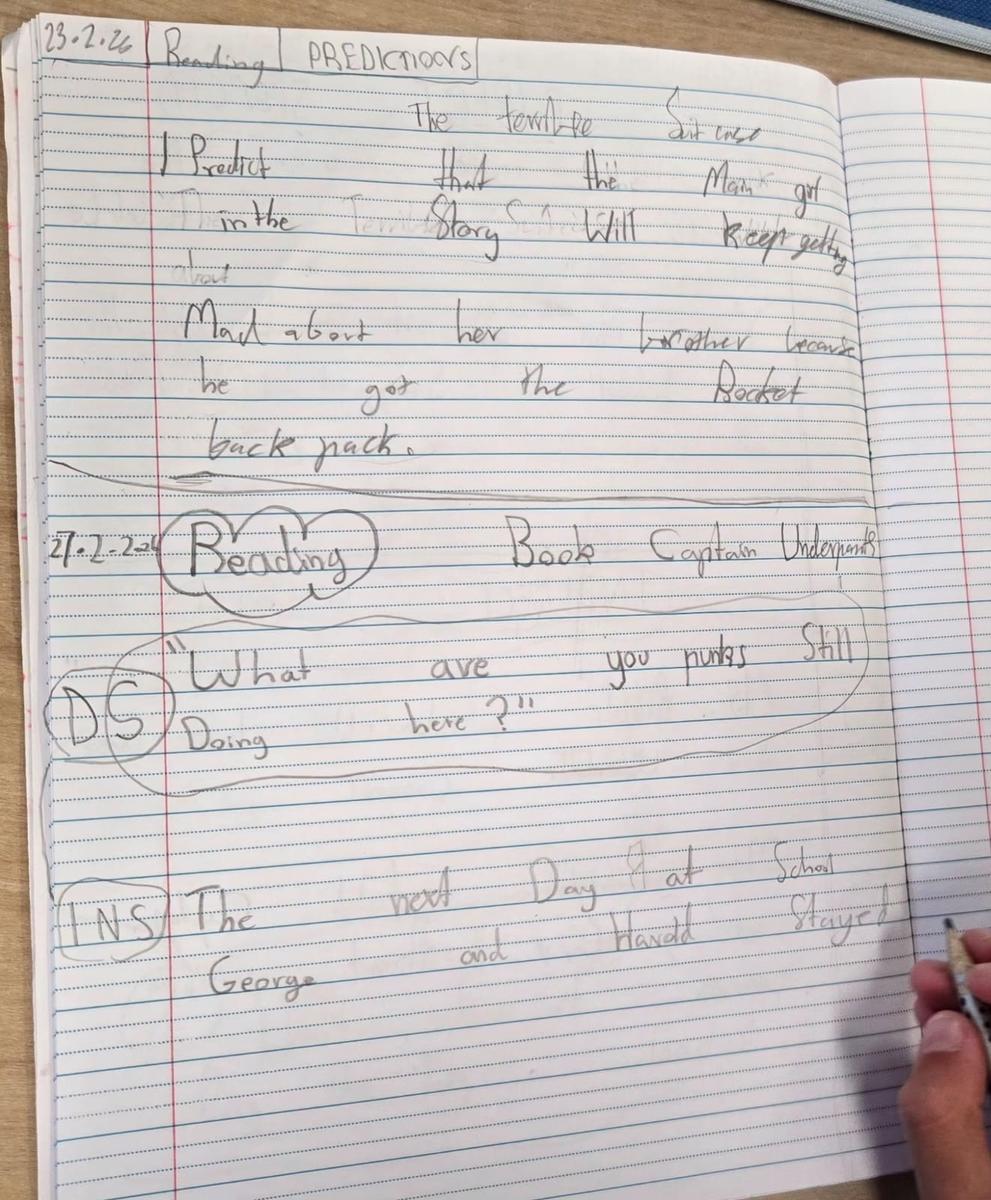 23.2.26 Reading PREDICTIONS
The Suit case
I Predict that the Main girl
in the Story Will Keep getting
about
Mad about her brother because
he got the Rocket
back pack.
27.2.2026 Reading Book Captain Underpants
DS "What are you punks Still
Doing here?"
INS The next Day at School
George and Harold Stayed